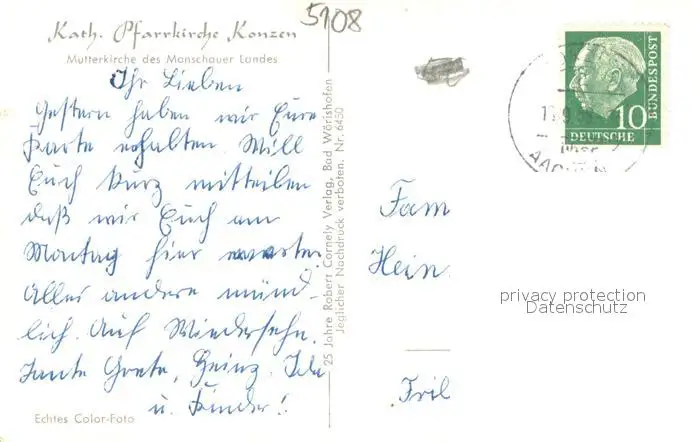 5108
Kath. Pfarrkirche Konzen
Mutterkirche des Monschauer Landes
Ihr Lieben
Gestern haben wir Eure
Karte erhalten. Will
Euch kurz mitteilen
daß wir Euch am
Montag hier erwarten.
Alles andere münd-
lich. Auf Wiedersehn.
Tante Grete, Heinz. Ida
u. Kinder!
Echtes Color-Foto
25 Jahre Robert Cornely Verlag, Bad Wörishofen
Jeglicher Nachdruck verboten. Nr. 6450
10
DEUTSCHE
BUNDESPOST
über
AACHEN
Fam
Hein
privacy protection
Datenschutz